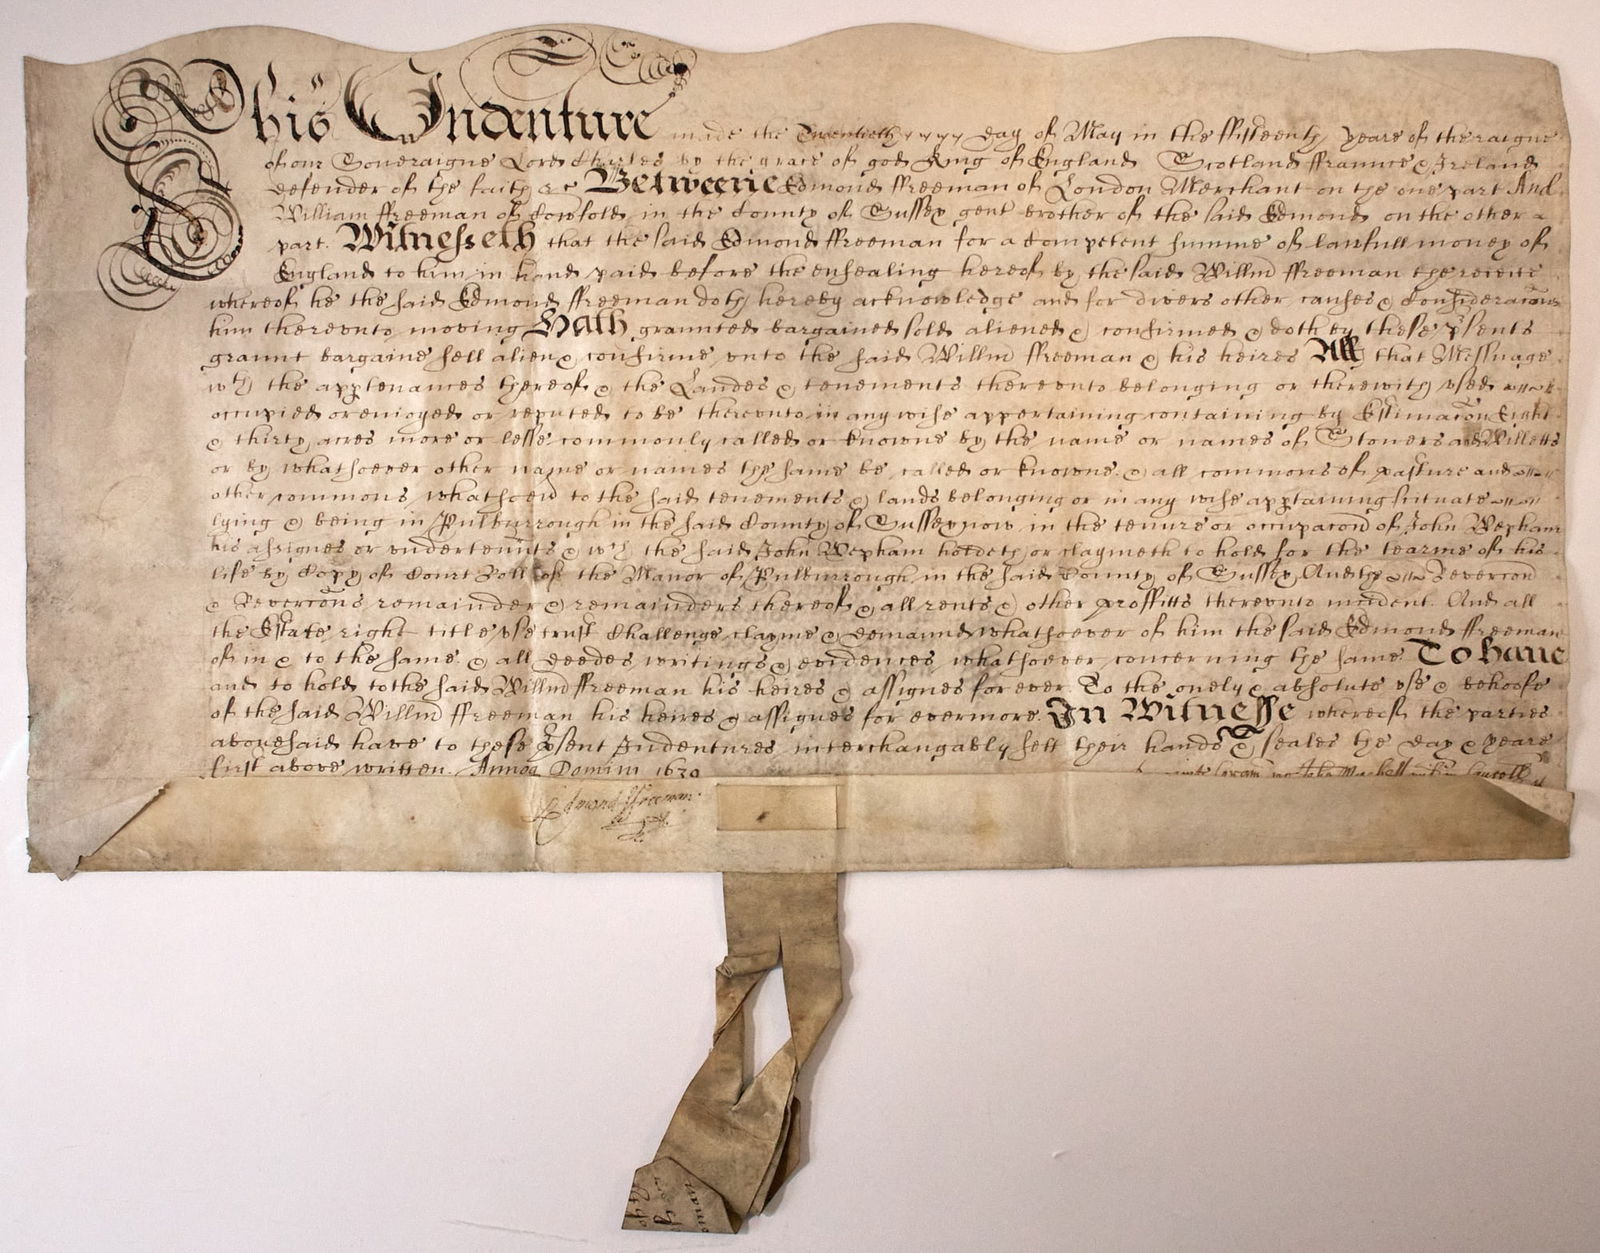 This Indenture made the Twentieth day of May in the fifteenth yeare of the raigne
of our Soveraigne Lord Charles by the grace of god King of England Scotland ffraunce & Ireland
defender of the faith &c Betweene Edmond ffreeman of London Merchant on the one part And
William ffreeman of Cowfold in the County of Sussex gent brother of the said Edmond on the other
part. Witnesseth that the said Edmond ffreeman for a competent summe of lawfull money of
England to him in hand paid before the ensealing hereof by the said Willm ffreeman the receite
whereof he the said Edmond ffreeman doth hereby acknowledge and for divers other causes & Consideracons
him therevnto moving Hath graunted bargained sold aliened & confirmed & doth by these psents
graunt bargaine sell alien & confirme vnto the said Willm ffreeman & his heires All that Messuage
wth the apptenances thereof & the Landes & tenements therevnto belonging or therewith vsed
occupied or enioyed or reputed to be therevnto in any wise appertaining containing by Estimacon Eight
& thirty acres more or lesse commonly called or knowne by the name or names of Stoners and Willetts
or by whatsoever other name or names the same be called or knowne & all commons of pasture and
other commons whatsoevr to the said tenements & lands belonging or in any wise apptaining scituate
lying & being in Pulburrough in the said County of Sussex now in the tenure or occupacon of John Wepham
his assignes or vndertenñts & wch the said John Wepham holdeth or claymeth to hold for the tearme of his
life by Copy of Court Roll of the Manor of Pulburrough in the said County of Sussex And the Revercon
& Revercons remainder & remainders thereof & all rents & other proffitts therevnto incident. And all
the Estate right title vse trust Challenge clayme & demaund whatsoever of him the said Edmond ffreeman
of in & to the same & all deedes writings & evidences whatsoever concerning the same To have
and to hold to the said Willm ffreeman his heires & assignes for ever To the onely & absolute vse & behoofe
of the said Willm ffreeman his heires & assignes for evermore. In Witnesse whereof the parties
abovesaid have to these psent Indentures interchangably sett their hands & seales the day & yeare
first above written. Annoq Domini 1639
Edmond ffreeman